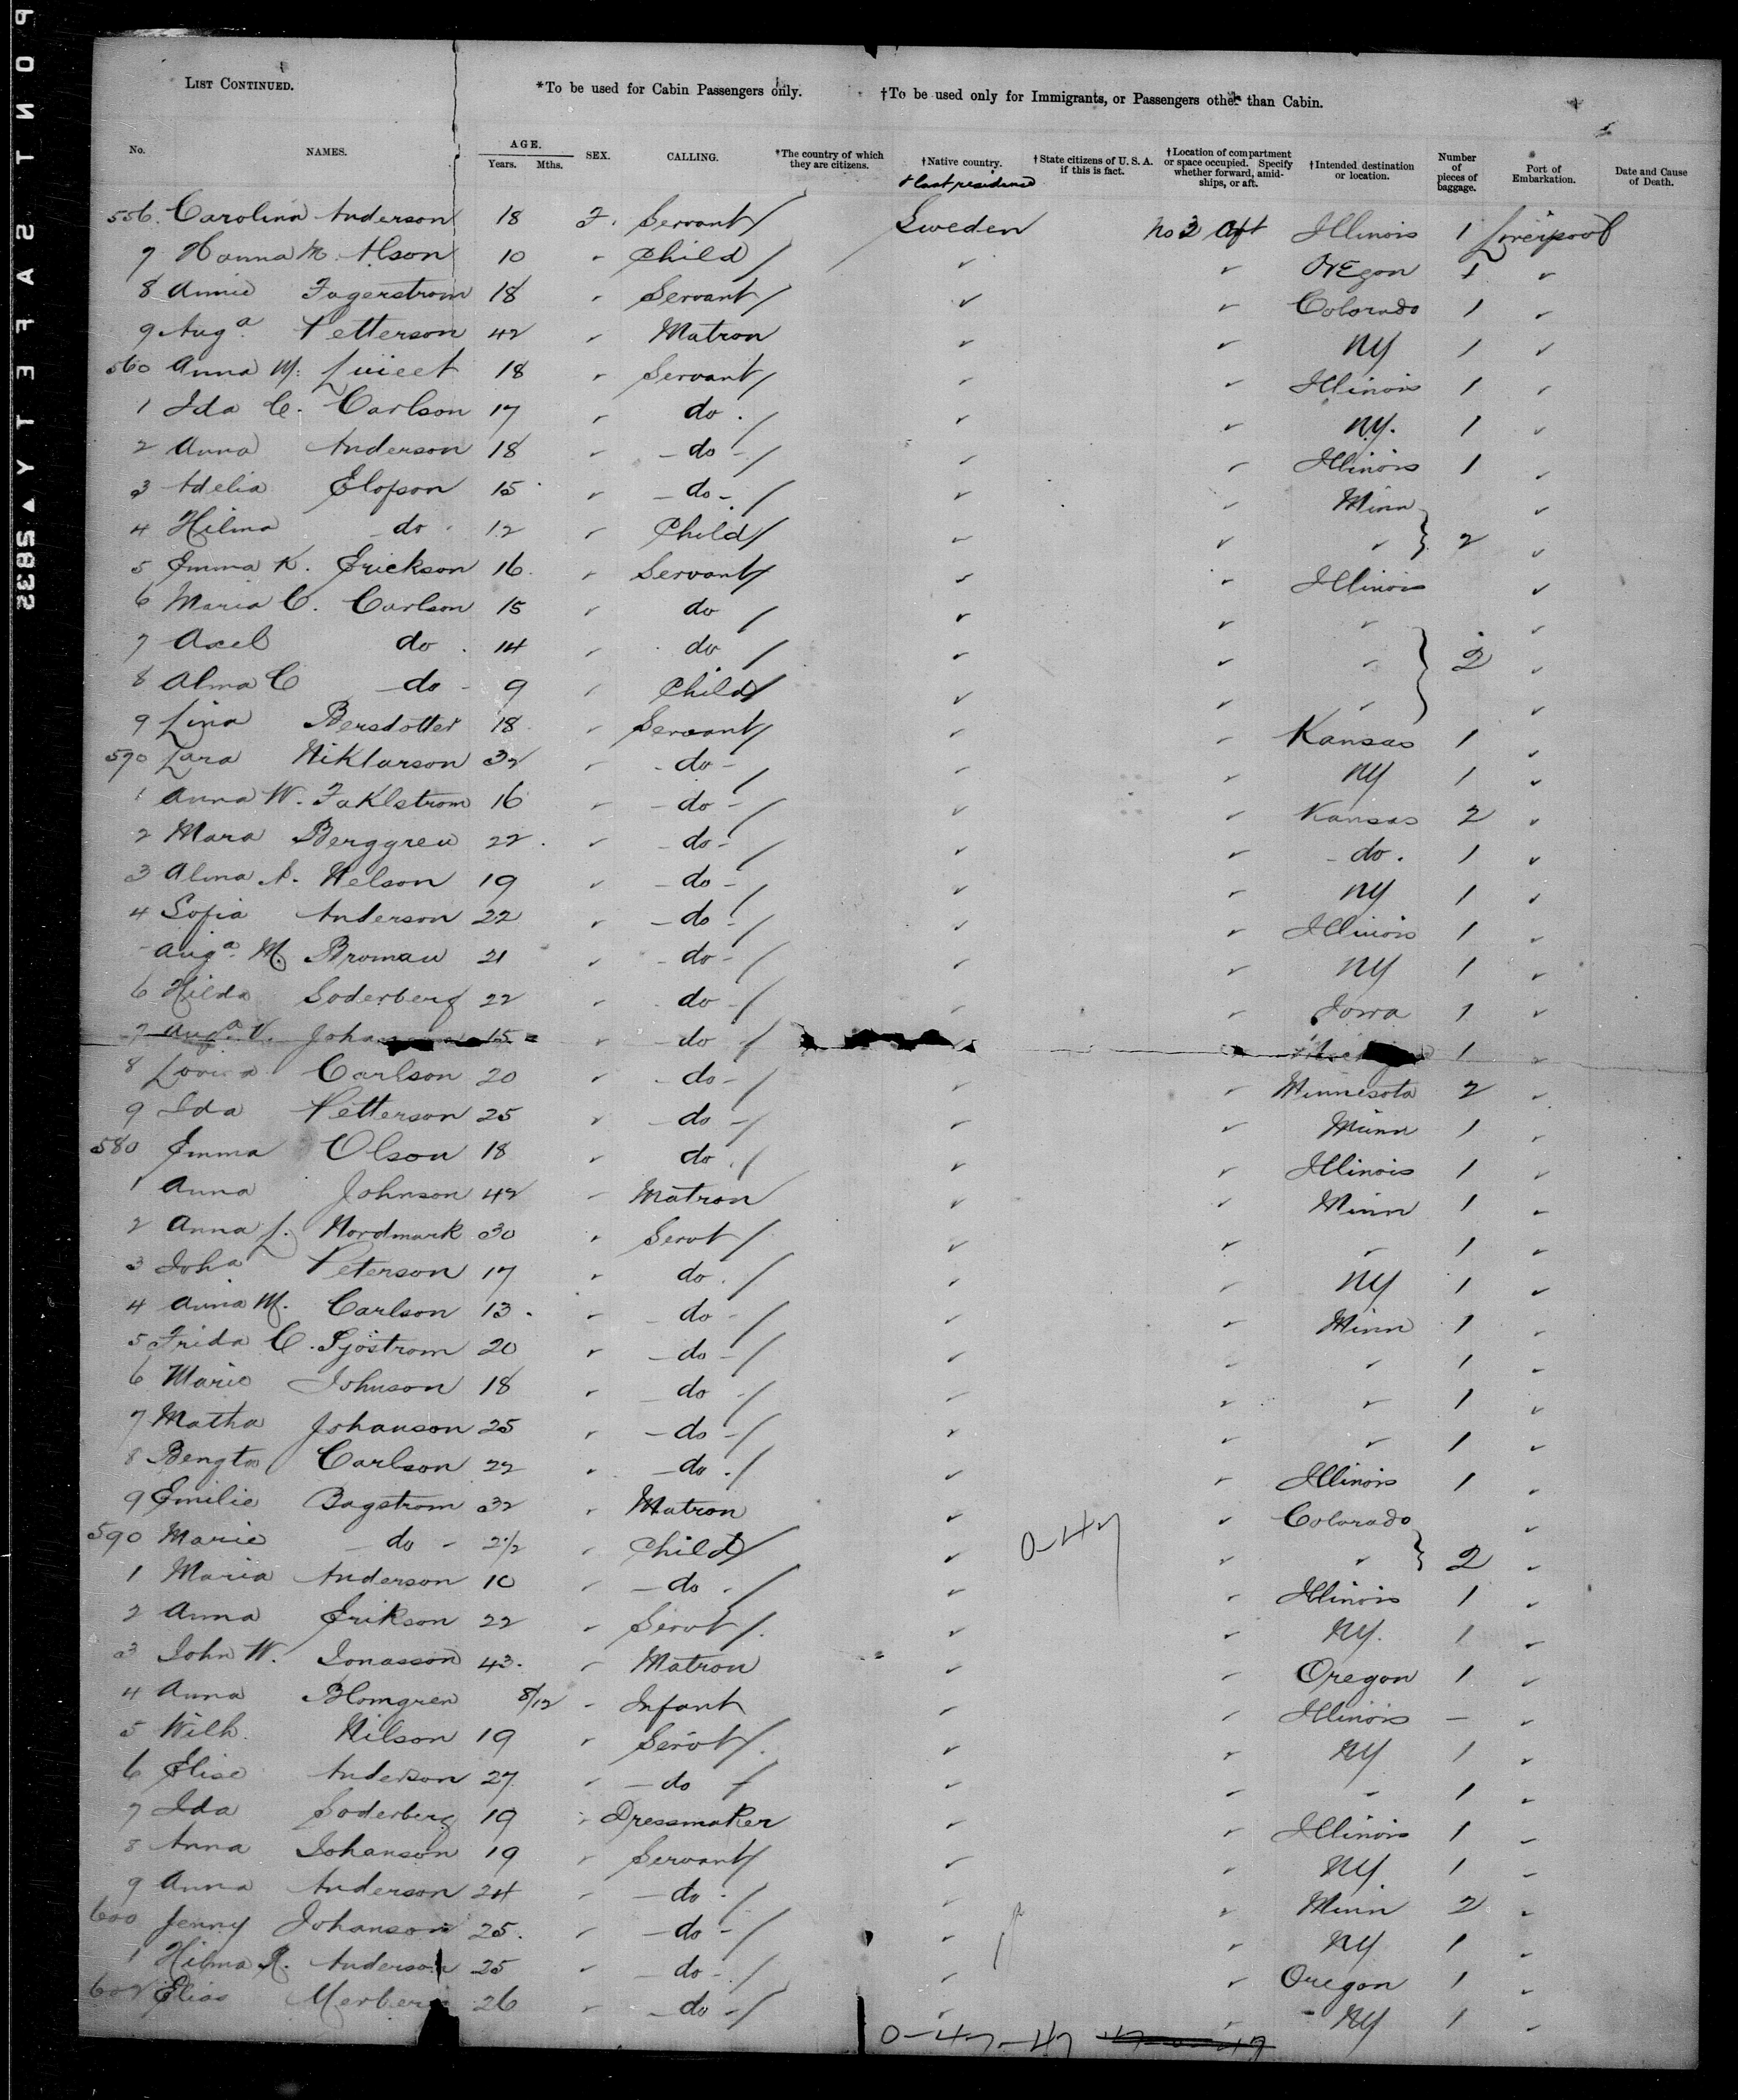 LIST CONTINUED. *To be used for Cabin Passengers only. †To be used only for Immigrants, or Passengers other than Cabin.
No. NAMES. AGE. Years. Mths. SEX. CALLING. *The country of which they are citizens. †Native country. + last residence †State citizens of U. S. A. if this is fact. †Location of compartment or space occupied. Specify whether forward, amid-ships, or aft. †Intended destination or location. Number of pieces of baggage. Port of Embarkation. Date and Cause of Death.
556. Carolina Anderson 18 F. Servant / Sweden No 3 Aft Illinois 1 Liverpool
7 Hanna M. Alson 10 ✓ Child / ✓ ✓ Oregon 1 ✓
8 Annie Fagerstrom 18 ✓ Servant / ✓ ✓ Colorado 1 ✓
9 Aug a. Petterson 42 ✓ Matron ✓ ✓ NY 1 ✓
560 Anna M. 18 ✓ Servant / ✓ ✓ Illinois 1 ✓
1 Ida C. Carlson 17 ✓ do. / ✓ ✓ N.Y. 1 ✓
2 Anna Anderson 18 ✓ - do - / ✓ ✓ Illinois 1 ✓
3 Adelia Elofson 15 ✓ - do - / ✓ ✓ Minn ✓
4 Hilma do 12 ✓ Child / ✓ ✓ ✓ } 2 ✓
5 Emma K. Erickson 16 ✓ Servant / ✓ ✓ Illinois ✓
6 Maria C. Carlson 15 ✓ do / ✓ ✓ ✓ ✓
7 Axel do. 14 ✓ do / ✓ ✓ ✓ } 2 ✓
8 Alma C - do - 9 ✓ Child / ✓ ✓ ✓ ✓
9 Lina Bersdotter 18 ✓ Servant / ✓ ✓ Kansas 1 ✓
590 Lara Niklarson 32 ✓ - do - / ✓ ✓ NY 1 ✓
1 Anna W. Faklstrom 16 ✓ - do - / ✓ ✓ Kansas 2 ✓
2 Mara Berggren 22. ✓ - do - / ✓ ✓ - do. 1 ✓
3 Alma A. Nelson 19 ✓ - do - / ✓ ✓ NY 1 ✓
4 Sofia Anderson 22 ✓ - do - / ✓ ✓ Illinois 1 ✓
Aug a. M. Broman 21 ✓ - do - / ✓ ✓ NY 1 ✓
6 Hilda Soderberg 22 ✓ do - / ✓ ✓ Iowa 1 ✓
7 Aug a V. 15 ✓ - do / ✓ 1 ✓
8 Lovisa Carlson 20 ✓ - do - / ✓ ✓ Minnesota 2 ✓
9 Ida Petterson 25 ✓ - do - / ✓ ✓ Minn 1 ✓
580 Emma Olson 18 ✓ do. / ✓ ✓ Illinois 1 ✓
1 Anna Johnson 42 ✓ Matron ✓ ✓ Minn 1 ✓
2 Anna L. Nordmark 30 ✓ Servt / ✓ ✓ ✓ 1 ✓
3 Joh a Peterson 17 ✓ do. / ✓ ✓ NY 1 ✓
4 Anna M. Carlson 13. ✓ do - / ✓ ✓ Minn 1 ✓
5 Frida C. Sjöstrom 20 ✓ - do - / ✓ ✓ ✓ 1 ✓
6 Marie Johnson 18 ✓ do - / ✓ ✓ ✓ 1 ✓
7 Matha Johanson 25 ✓ - do - / ✓ ✓ ✓ 1 ✓
8 Bengta Carlson 22 ✓ - do. / ✓ ✓ Illinois 1 ✓
9 Emilie Bagstrom 32 ✓ Matron ✓ ✓ Colorado ✓
590 Marie - do - 2½ ✓ Child / ✓ 0-47 ✓ ✓ } 2 ✓
1 Maria Anderson 10 ✓ - do. / ✓ ✓ Illinois 1 ✓
2 Anna Erikson 22 ✓ Servt /. ✓ ✓ NY. 1 ✓
3 John W. Jonasson 43. ✓ Matron ✓ ✓ Oregon 1 ✓
4 Anna Blomgren 8/12 ✓ Infant ✓ ✓ Illinois - ✓
5 Wilh. Nilson 19 ✓ Servt /. ✓ ✓ NY 1 ✓
6 Elise Anderson 27 ✓ - do / ✓ ✓ ✓ 1 ✓
7 Ida Soderberg 19 ✓ Dressmaker ✓ ✓ Illinois 1 ✓
8 Anna Johanson 19 ✓ Servant / ✓ ✓ NY 1 ✓
9 Anna Anderson 24 ✓ - do. / ✓ ✓ Minn 2 ✓
600 Jenny Johanson 25. ✓ - do - / ✓ ✓ NY 1 ✓
1 Hilma R. Anderson 25 ✓ - do - / ✓ ✓ Oregon 1 ✓
602 Elias 26 ✓ - do - / ✓ ✓ NY 1 ✓
0-47-47